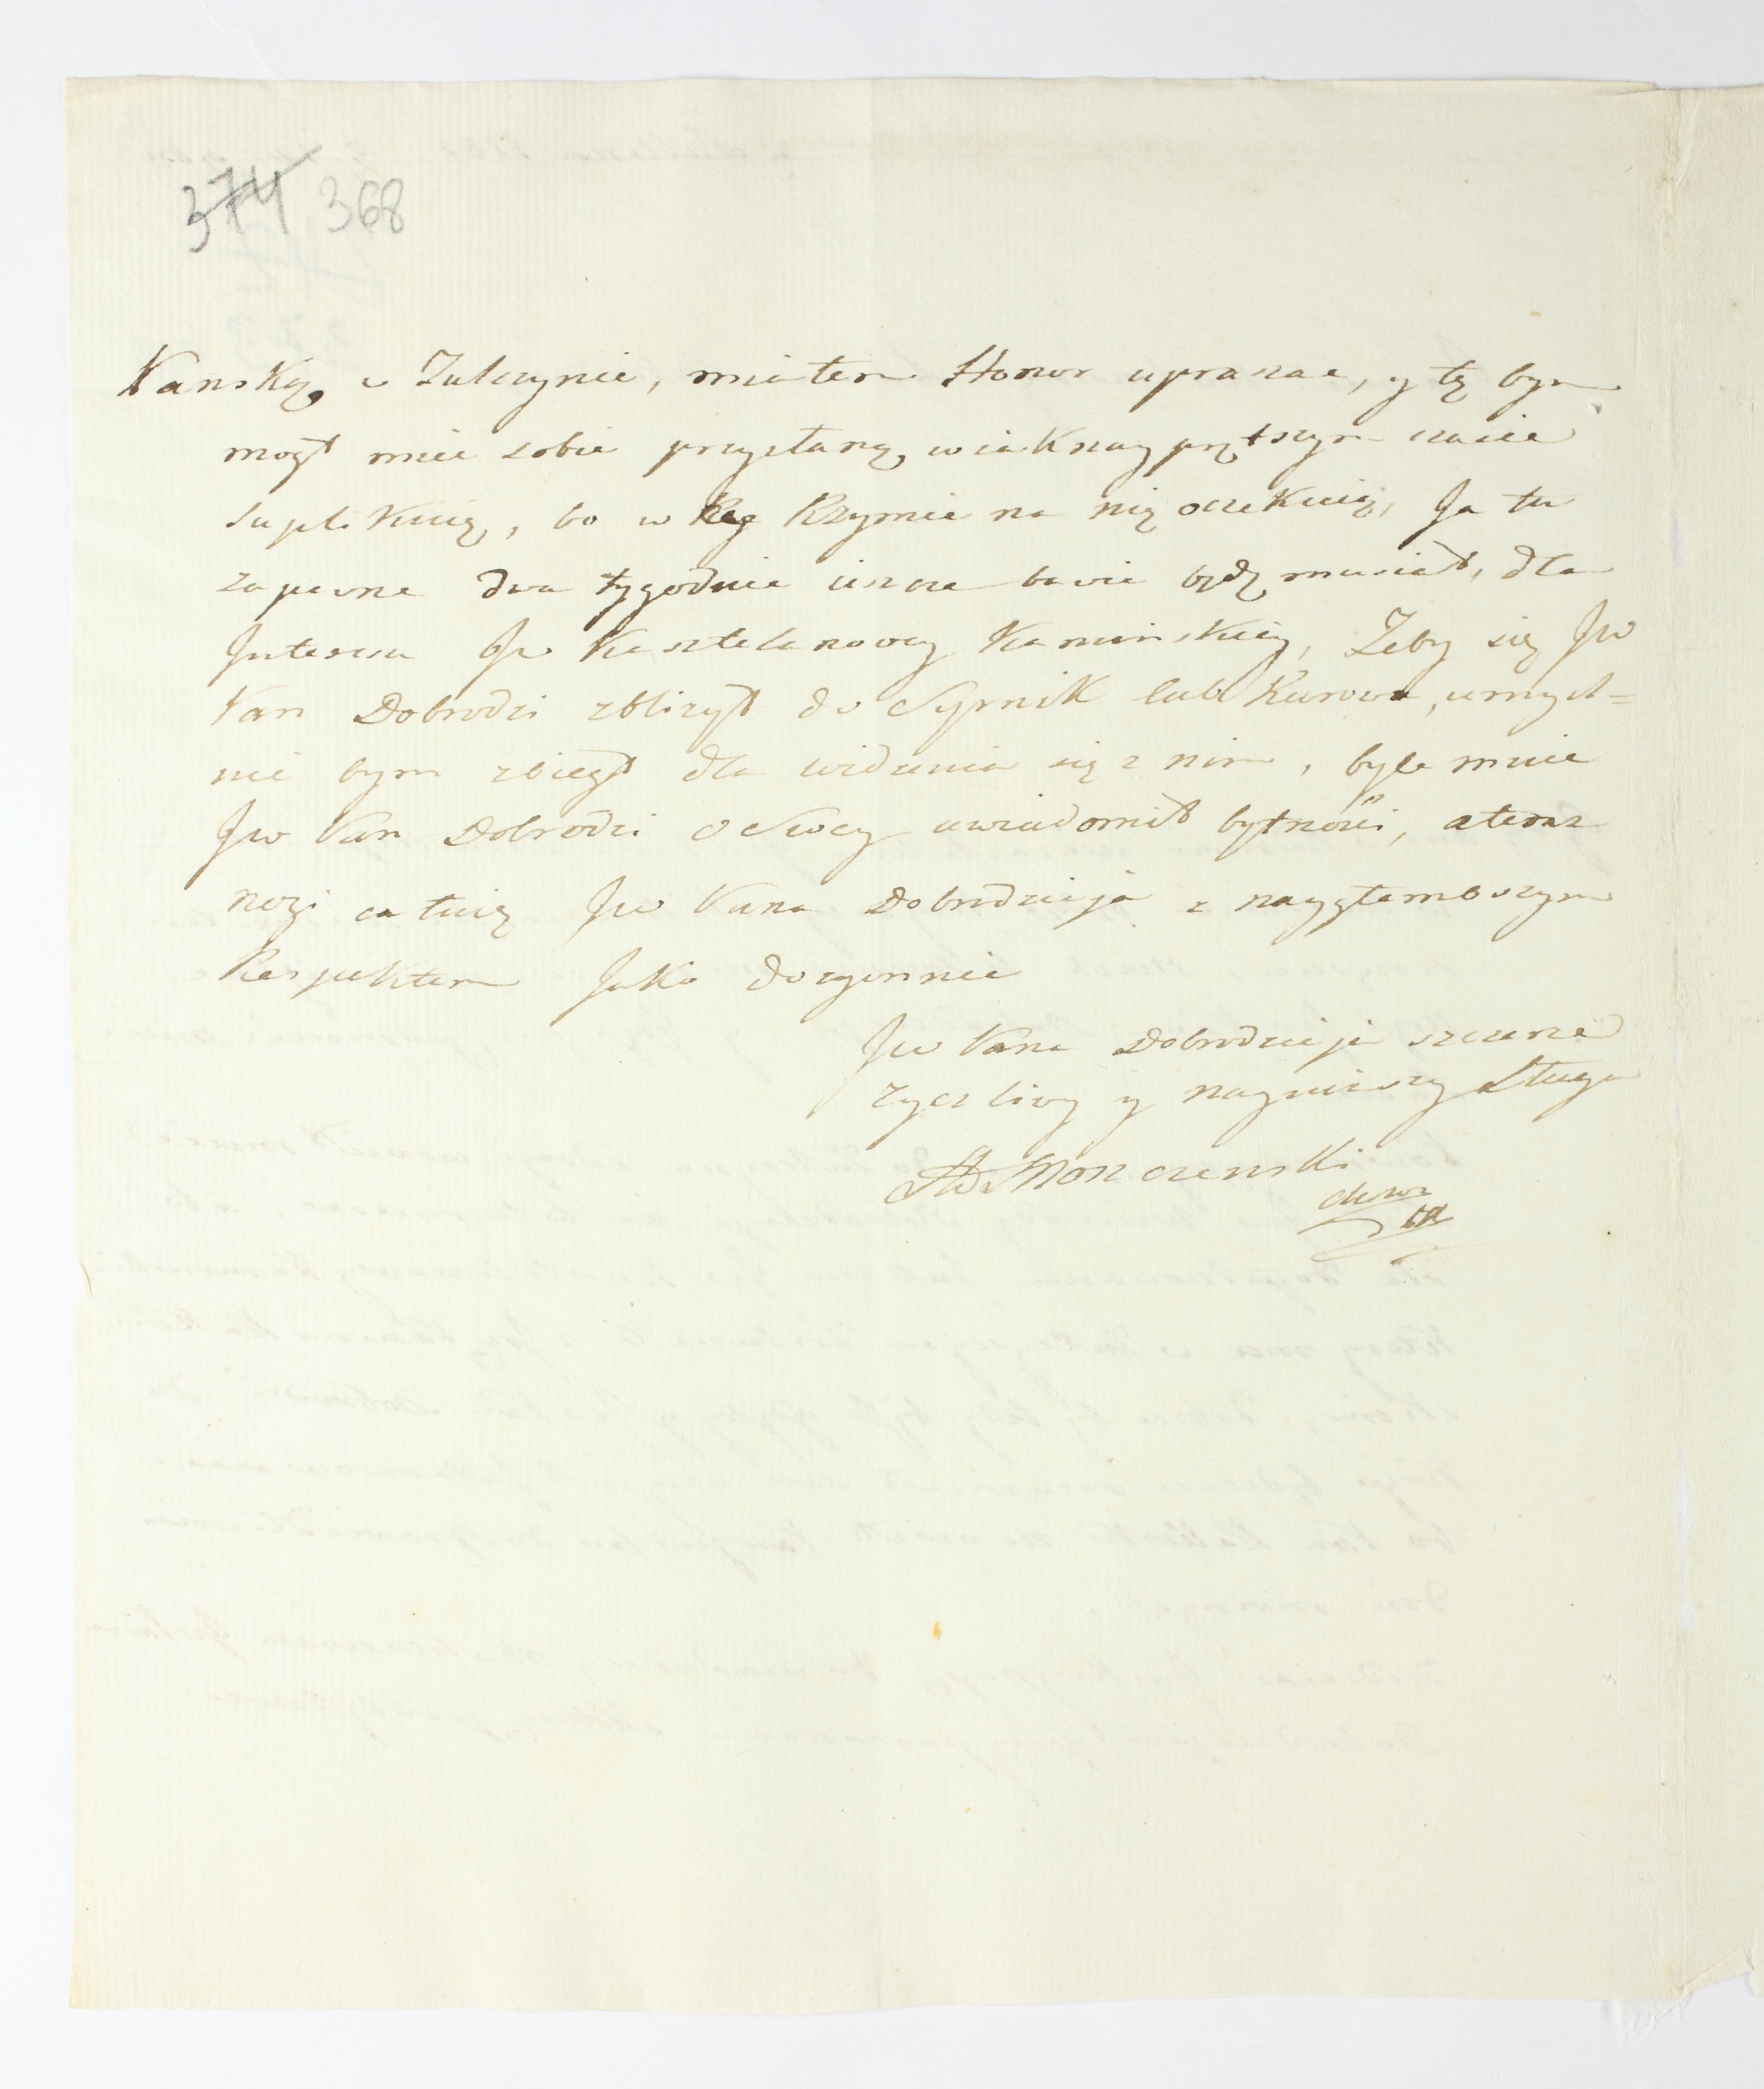 374 368
Pańską w Tulczynie, miałem Honor upraszac, y tę bym
mogł miec sobie przysłaną, w iak nayprętszym czasie
suplikuię, bo w Rzymie na nię oczekuią, Ja tu
zapewne dwa tygodnie iescze bawic będę musiał, dla
Interesu Jw Kasztelanowy Kaminskiey, Żeby się Jw
Pan Dobrodzi zbliżył do Syrnik lub Kurowa, umysl=
nie bym zbiegł dla widzenia się z nim, byle mnie
Jw Pan Dobrodzi o Swey uwiadomił bytnosci, a teraz
nogi całuię Jw Pana Dobrodzieja z naygłembszym
Respektem Jako dozgonnie
Jw Pana Dobrodzieja szczerze
życzliwy y nayniższy Sługa
Moszczenski